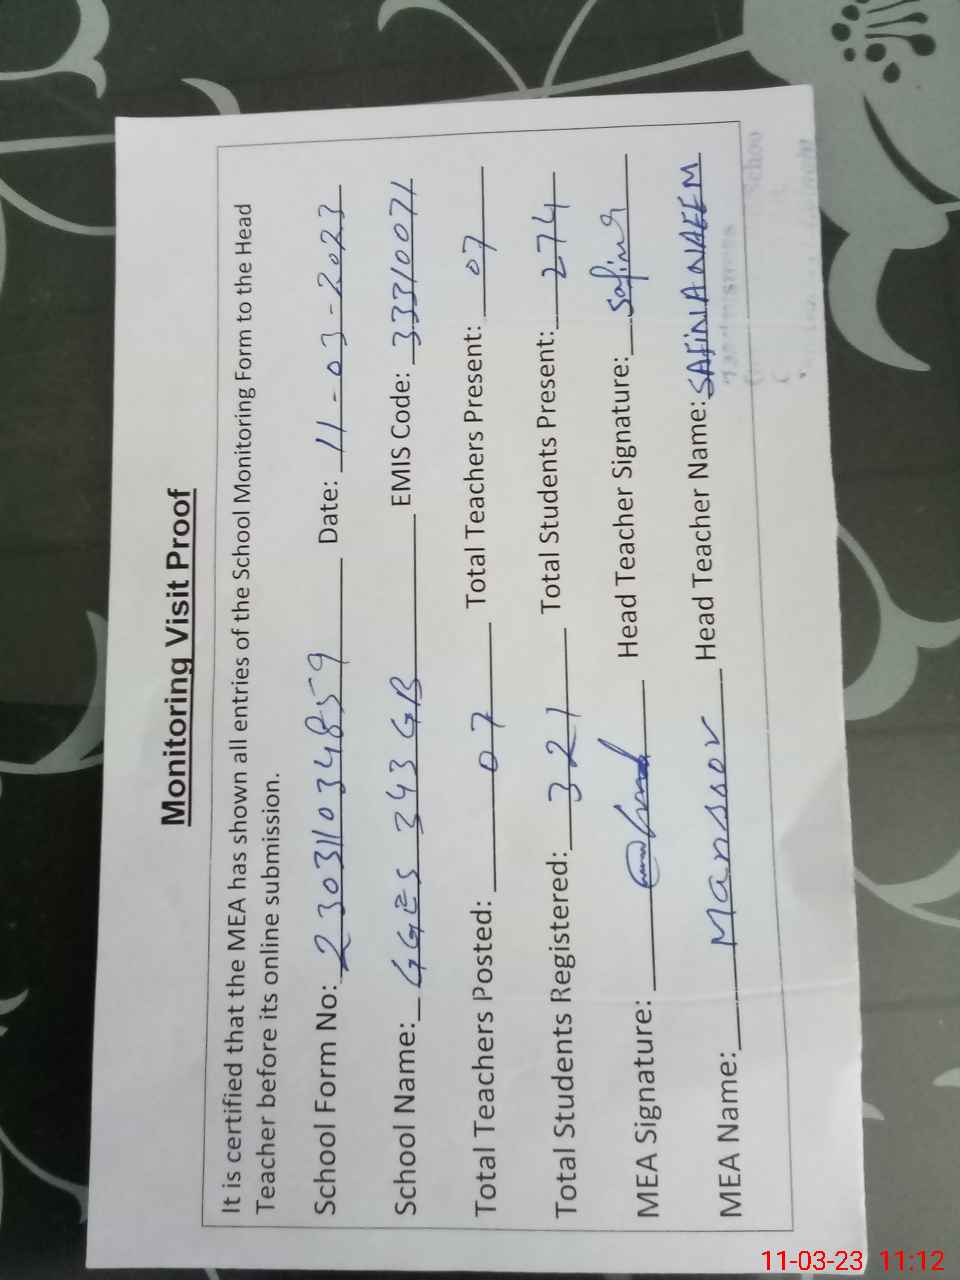 Monitoring Visit Proof
It is certified that the MEA has shown all entries of the School Monitoring Form to the Head
Teacher before its online submission.
School Form No: 230311034859 Date: 11-03-2023
School Name: GGES 343 GB EMIS Code: 33310071
Total Teachers Posted: 07 Total Teachers Present: 07
Total Students Registered: 321 Total Students Present: 274
MEA Signature: Head Teacher Signature: Safina
MEA Name: Manssor Head Teacher Name: SAFINA NAEEM
11-03-23 11:12